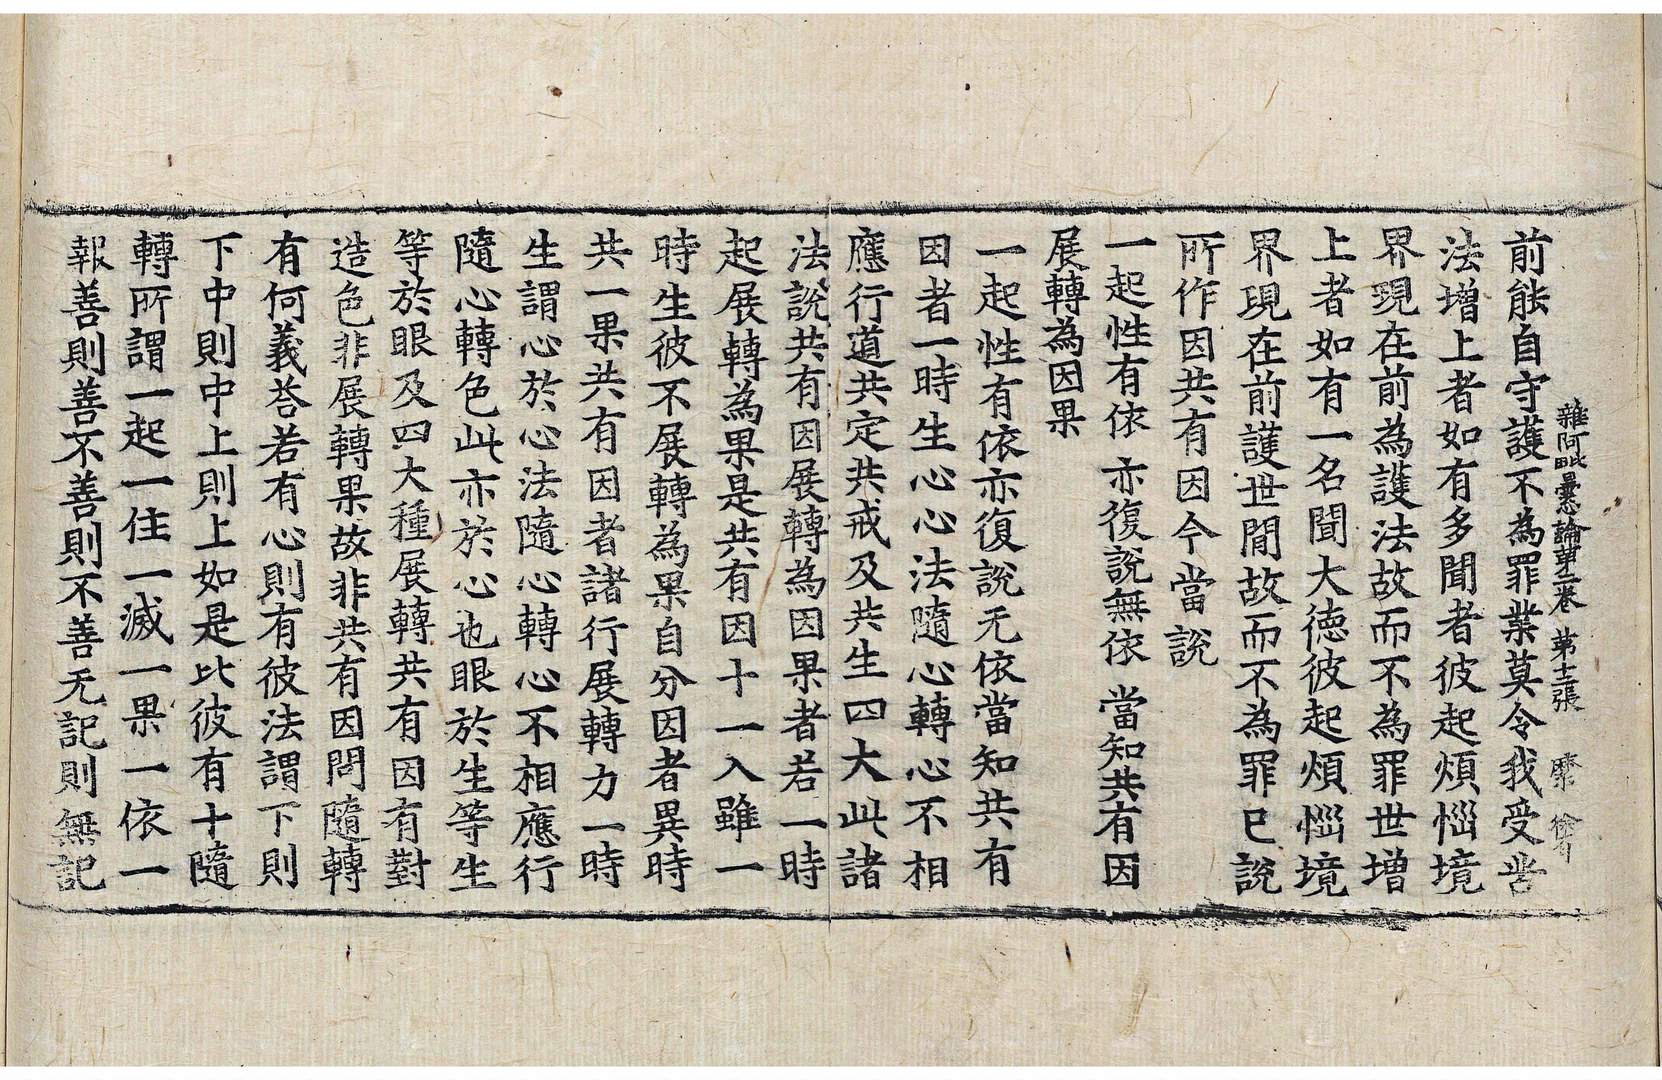 雜阿毗曇心論第二卷 第十二張 縻
前能自守護不為罪業莫令我受苦
法增上者如有多聞者彼起煩惱境
界現在前為護法故而不為罪世增
上者如有一名聞大德彼起煩惱境
界現在前護世間故而不為罪已說
所作因共有因今當說
一起性有依 亦復說無依 當知共有因
展轉為因果
一起性有依亦復說无依當知共有
因者一時生心心法隨心轉心不相
應行道共定共戒及共生四大此諸
法說共有因展轉為因果者若一時
起展轉為果是共有因十一入雖一
時生彼不展轉為果自分因者異時
共一果共有因者諸行展轉力一時
生謂心於心法隨心轉心不相應行
隨心轉色此亦於心也眼於生等生
等於眼及四大種展轉共有因有對
造色非展轉果故非共有因問隨轉
有何義荅若有心則有彼法謂下則
下中則中上則上如是比彼有十隨
轉所謂一起一住一滅一果一依一
報善則善不善則不善无記則無記